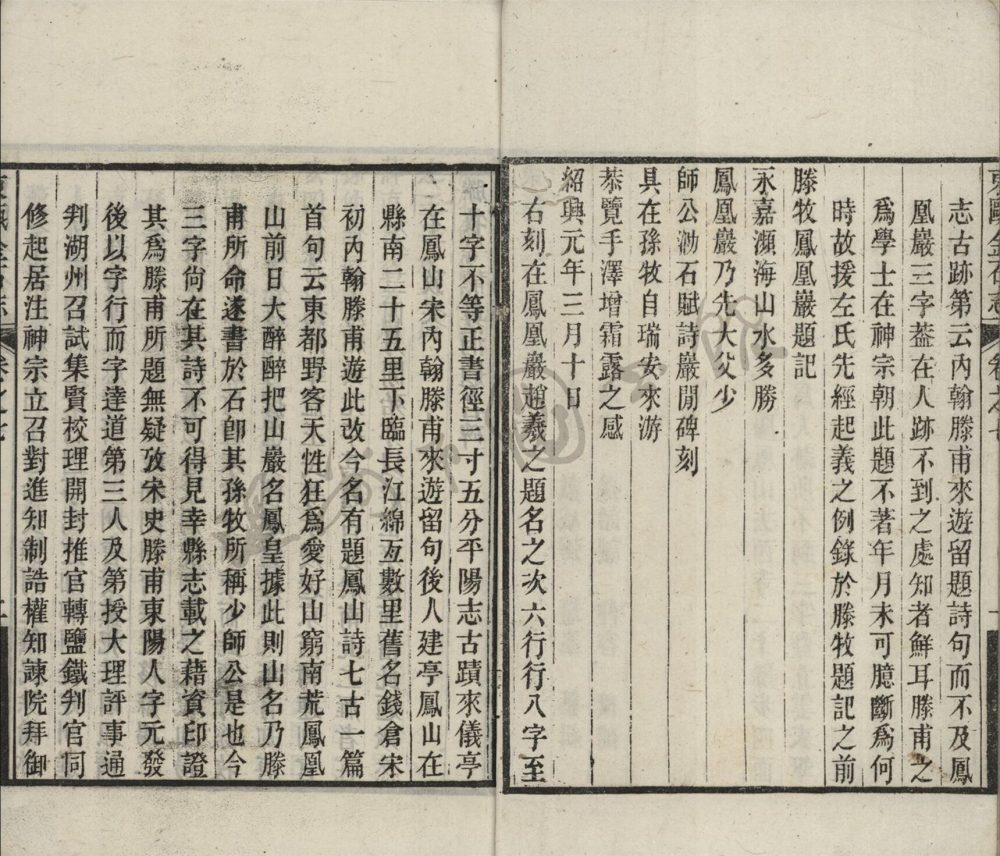 志古跡第云內翰滕甫來遊留題詩句而不及鳳
凰巖三字葢在人跡不到之處知者鮮耳滕甫之
爲學士在神宗朝此題不著年月未可臆斷爲何
時故援左氏先經起義之例錄於滕牧題記之前
滕牧鳳凰巖題記
永嘉瀕海山水多勝
鳳凰巖乃先大父少
師公泐石賦詩巖閒碑刻
具在孫牧自瑞安來游
恭覽手澤增霜露之感
紹興元年三月十日
右刻在鳳凰巖趙羲之題名之次六行行八字至
十字不等正書徑三寸五分平陽志古蹟來儀亭
在鳳山宋內翰滕甫來遊留句後人建亭鳳山在
縣南二十五里下臨長江綿亙數里舊名錢倉宋
初內翰滕甫遊此改今名有題鳳山詩七古一篇
首句云東都野客天性狂爲愛好山窮南荒鳳凰
山前日大醉醉把山巖名鳳皇據此則山名乃滕
甫所命遂書於石卽其孫牧所稱少師公是也今
三字尙在其詩不可得見幸縣志載之藉資印證
其爲滕甫所題無疑攷宋史滕甫東陽人字元發
後以字行而字達道第三人及第授大理評事通
判湖州召試集賢校理開封推官轉鹽鐵判官同
修起居注神宗立召對進知制誥權知諫院拜御